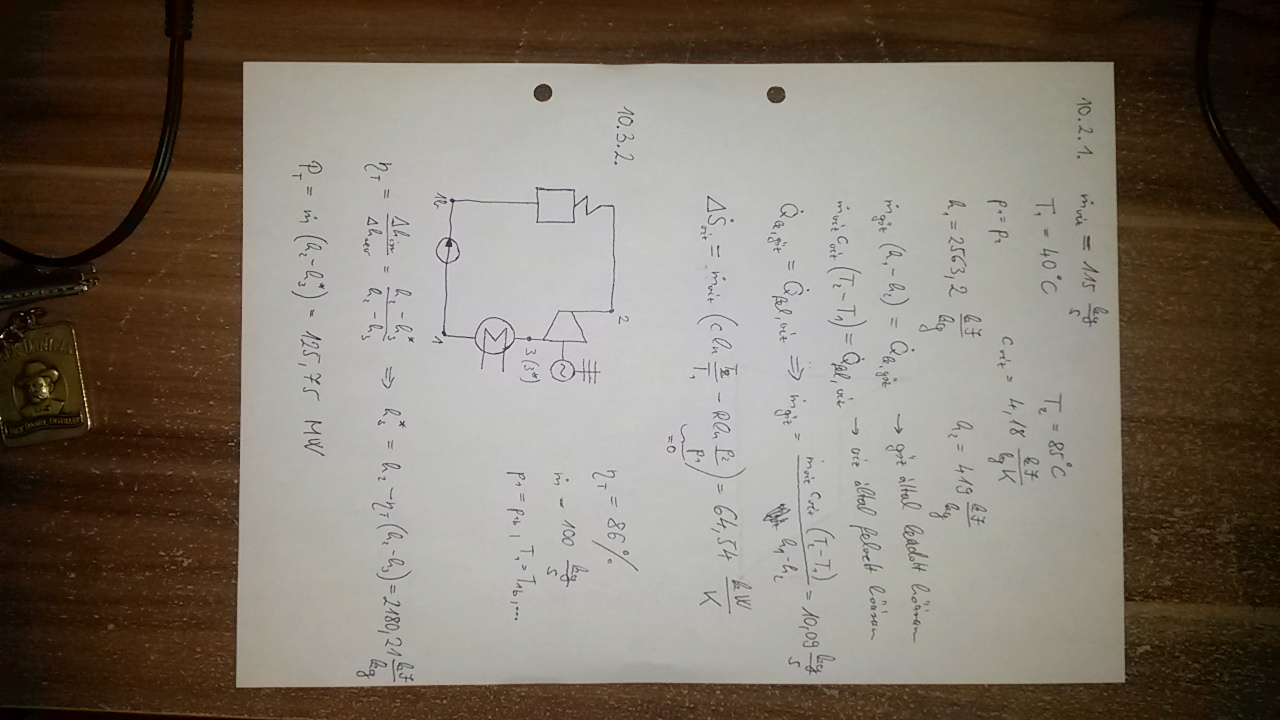 10.2.1. ṁvíz = 115 kg/s
T₁ = 40°C T₂ = 85°C
p₁ = p₂ cvíz = 4,18 kJ/kgK
h₁ = 2563,2 kJ/kg h₂ = 419 kJ/kg
ṁgőz (h₁ - h₂) = Q̇le,gőz → gőz által leadott hőáram
ṁvíz cvíz (T₂ - T₁) = Q̇fel,víz → víz által felvett hőáram
Q̇le,gőz = Q̇fel,víz ⇒ ṁgőz = ṁvíz cvíz (T₂ - T₁) / h₁ - h₂ = 10,09 kg/s
ΔṠvíz = ṁvíz (c ln T₂/T₁ - R ln p₂/p₁) = 64,54 kW/K
=0
10.3.2.
2
3 (3*)
1b
1
ηT = 86%
ṁ = 100 kg/s
p₁ = p1b, T₁ = T1b, ...
ηT = Δh / Δh = h₂ - h₃* / h₂ - h₃ ⇒ h₃* = h₂ - ηT (h₂ - h₃) = 2180,21 kJ/kg
PT = ṁ (h₂ - h₃*) = 125,75 MW